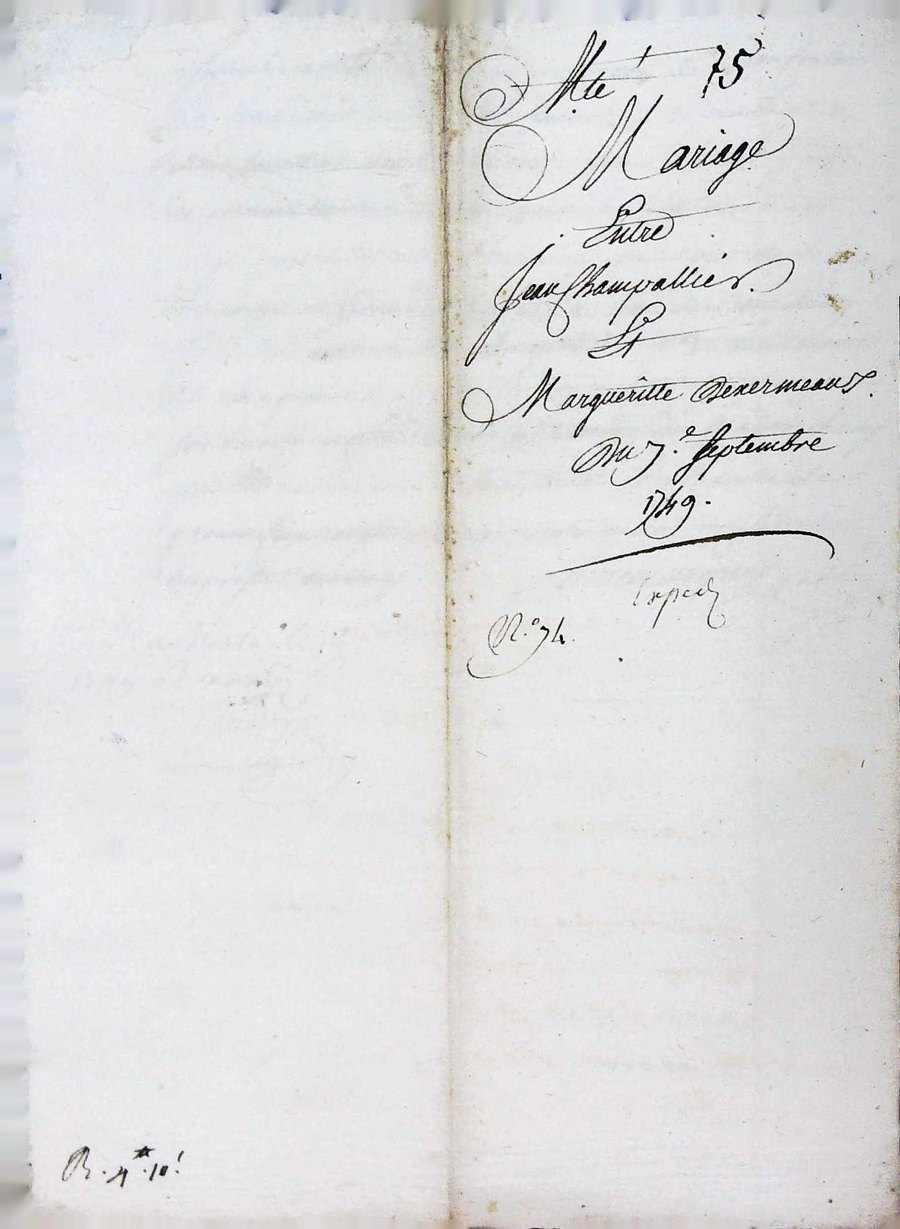 M.te 75
Mariage
Entre
Jean Champallier.
Et
Margueritte Desermeaux.
Du 7.e Septembre
1749.
Exped
N.o 74.
R. 4.# 10.s